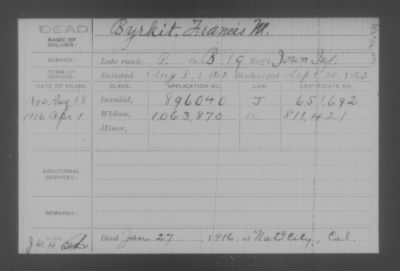 DEAD
NAME OF SOLDIER: Byrkit, Francis M.
SERVICE: Late rank, P. Co. B, 19 Reg't Iowa Inf.
TERM OF SERVICE: Enlisted Aug 8, 1862 Discharged
DATE OF FILING. CLASS. APPLICATION NO. LAW. CERTIFICATE NO.
1890 Aug 18 Invalid, 896040 J 651,692
1916 Apr 1 Widow, 1,063,870 811,421
Minor,
ADDITIONAL SERVICES:
REMARKS:
Died Jan 27, 1916, at Nat'l City, Cal.